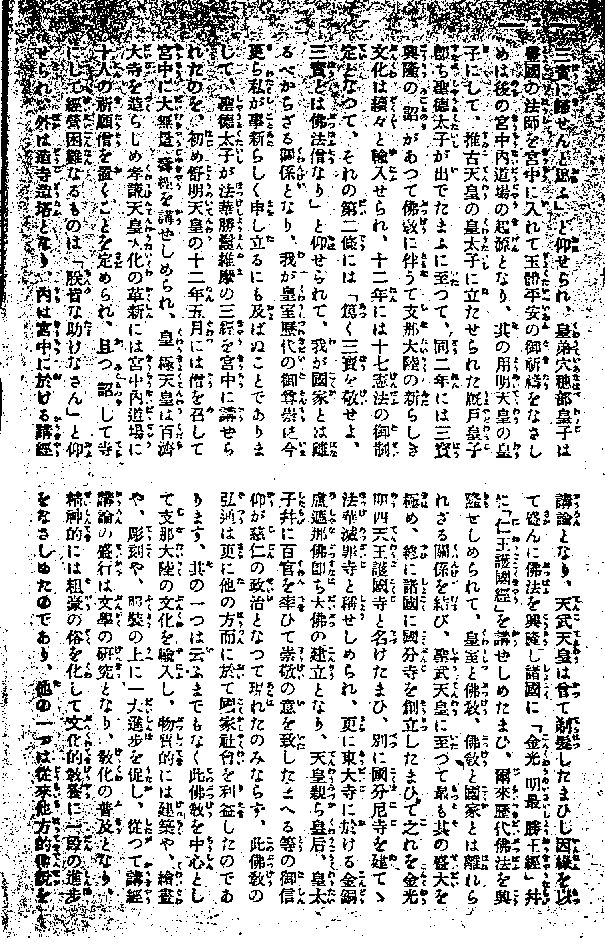 三寶に歸せんと思ふ」と仰せられ、皇弟穴穗部皇子は
豐國の法師を宮中に入れて玉體平安の御祈禱をなさし
めは後の宮中內道場の起源となり、其の用明天皇の皇
子にして、推古天皇の皇太子に立たせられた厩戶皇子
卽ち聖德太子が出でたまふに至つて、同二年には三寶
興隆の詔があつて佛敎に伴うて支那大陸の新らしき
文化は續々と輸入せられ、十二年には十七憲法の御制
定となつて、それの第二條には「篤く三寶を敬せよ、
三寶とは佛法僧なり」と仰せられて、我が國家とは離
るべからざる關係となり、我が皇室歷代の御尊崇は今
更ら私が事新らしく申し立るにも及ばぬことでありま
して、聖德太子が法華勝鬘維摩の三經を宮中に講せら
れたのを、初め舒明天皇の十二年五月には僧を召して
宮中に大無量壽經を講せしめられ、皇極天皇は百濟
大寺を造らしめ孝謙天皇大化の革新には宮中內道場に
十人の祈願僧を置くことを定められ、且つ詔して寺
にして經營困難なるものは「朕皆な助けなさん」と仰
せられ、外は造寺造塔となり、內は宮中に於ける講經
講論となり、天武天皇は曾て剃髮したまひし因緣を以
て盛んに佛法を興隆し諸國に「金光明最勝王經」幷
に「仁王護國經」を講せしめたまひ、爾來歷代佛法を興
隆せしめられて、皇室と佛敎、佛敎と國家とは離れら
れざる關係を結び、聖武天皇に至つて最も其の盛大を
極め、終に諸國に國分寺を創立したまひて之れを金光
明四天王護國寺と名けたまひ、別に國分尼寺を建てゝ
法華滅罪寺と稱せしめられ、更に東大寺に於ける金銅
盧遮那佛卽ち大佛の建立となり、天皇親ら皇后、皇太
子幷に百官を率ひて崇敬の意を致したまへる等の御信
仰が慈仁の政治となつて現れたのみならず、此佛敎の
弘通は更に他の方面に於て國家社會を利益したのであ
ります、其の一つは云ふまでもなく此佛敎を中心とし
て支那大陸の文化を輸入し、物質的には建築や、繪畫
や、彫刻や、服裝の上に一大進步を促し、從つて講經
講論の盛行は文學の硏究となり、敎化の普及となり、
精神的には粗豪の俗を化して文化的敎養に一段の進步
をなさしめたのであり、他の一つは從來他方的佛說を